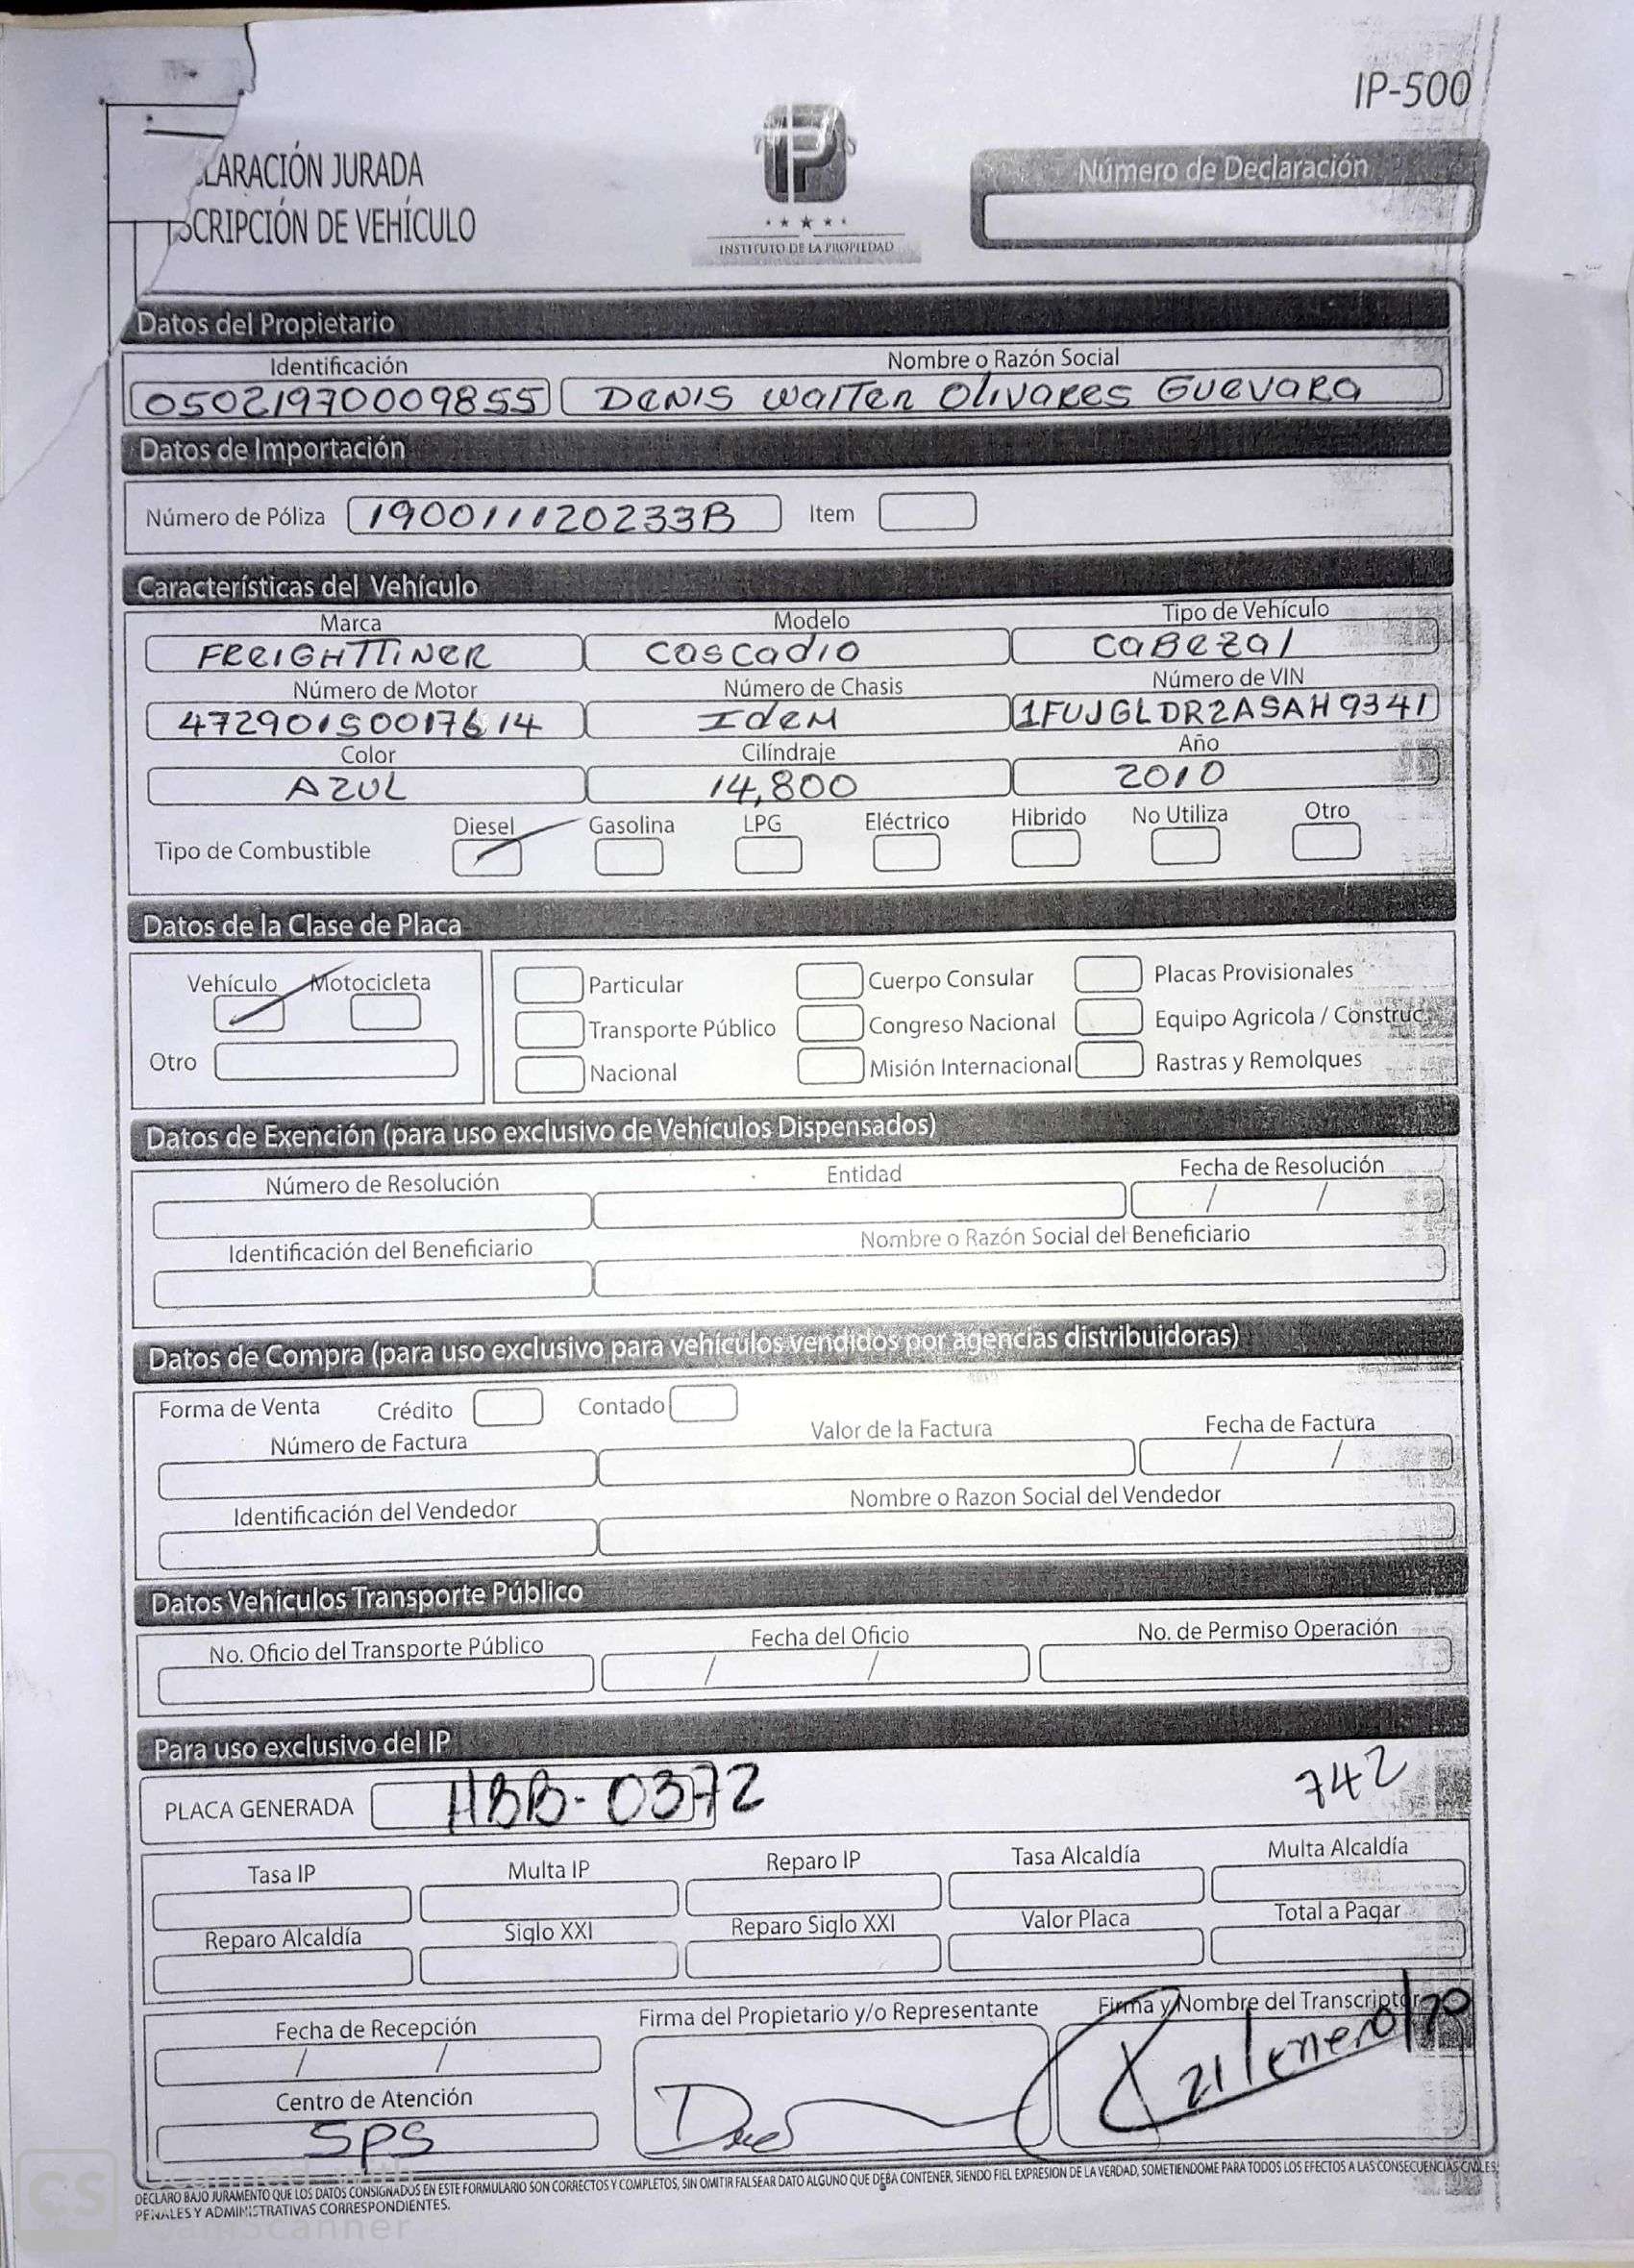 IP-500
LARACIÓN JURADA
SCRIPCIÓN DE VEHÍCULO
IP
INSTITUTO DE LA PROPIEDAD
Número de Declaración
Datos del Propietario
Identificación Nombre o Razón Social
05021970009855 DENIS WALTER OLIVARES GUEVARA
Datos de Importación
Número de Póliza 190011120233B Item
Características del Vehículo
Marca Modelo Tipo de Vehículo
FREIGHTTINER CASCADIO CABEZAL
Número de Motor Número de Chasis Número de VIN
472901S0017614 IDEM 1FUJGLDR2ASAH9341
Color Cilíndraje Año
AZUL 14,800 2010
Tipo de Combustible Diesel Gasolina LPG Eléctrico Hibrido No Utiliza Otro
Datos de la Clase de Placa
Vehículo Motocicleta
Otro
Particular Cuerpo Consular Placas Provisionales
Transporte Público Congreso Nacional Equipo Agricola / Construc.
Nacional Misión Internacional Rastras y Remolques
Datos de Exención (para uso exclusivo de Vehículos Dispensados)
Número de Resolución Entidad Fecha de Resolución
/ /
Identificación del Beneficiario Nombre o Razón Social del Beneficiario
Datos de Compra (para uso exclusivo para vehículos vendidos por agencias distribuidoras)
Forma de Venta Crédito Contado
Número de Factura Valor de la Factura Fecha de Factura
/ /
Identificación del Vendedor Nombre o Razon Social del Vendedor
Datos Vehículos Transporte Público
No. Oficio del Transporte Público Fecha del Oficio No. de Permiso Operación
/ /
Para uso exclusivo del IP
PLACA GENERADA HBB-0372 742
Tasa IP Multa IP Reparo IP Tasa Alcaldía Multa Alcaldía
Reparo Alcaldía Siglo XXI Reparo Siglo XXI Valor Placa Total a Pagar
Fecha de Recepción Firma del Propietario y/o Representante Firma y Nombre del Transcriptor
/ / 21/enero/20
Centro de Atención
SPS
DECLARO BAJO JURAMENTO QUE LOS DATOS CONSIGNADOS EN ESTE FORMULARIO SON CORRECTOS Y COMPLETOS, SIN OMITIR FALSEAR DATO ALGUNO QUE DEBA CONTENER, SIENDO FIEL EXPRESION DE LA VERDAD, SOMETIENDOME PARA TODOS LOS EFECTOS A LAS CONSECUENCIAS CIVILES,
PENALES Y ADMINISTRATIVAS CORRESPONDIENTES.
CS
Scanned with
CamScanner